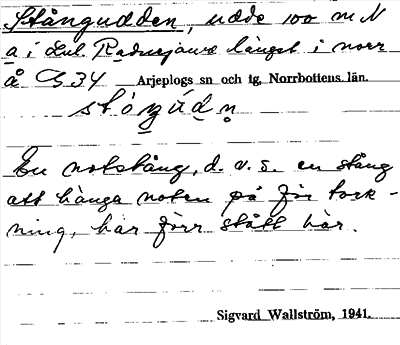 Stångudden, udde 100 m N
a i Lul. Raduejaure längst i norr
å G 34 Arjeplogs sn och tg, Norrbottens. län.
En notstång, d. v. s. en stång
att hänga noten på för tork-
ning, har förr stått här.
Sigvard Wallström, 1941.